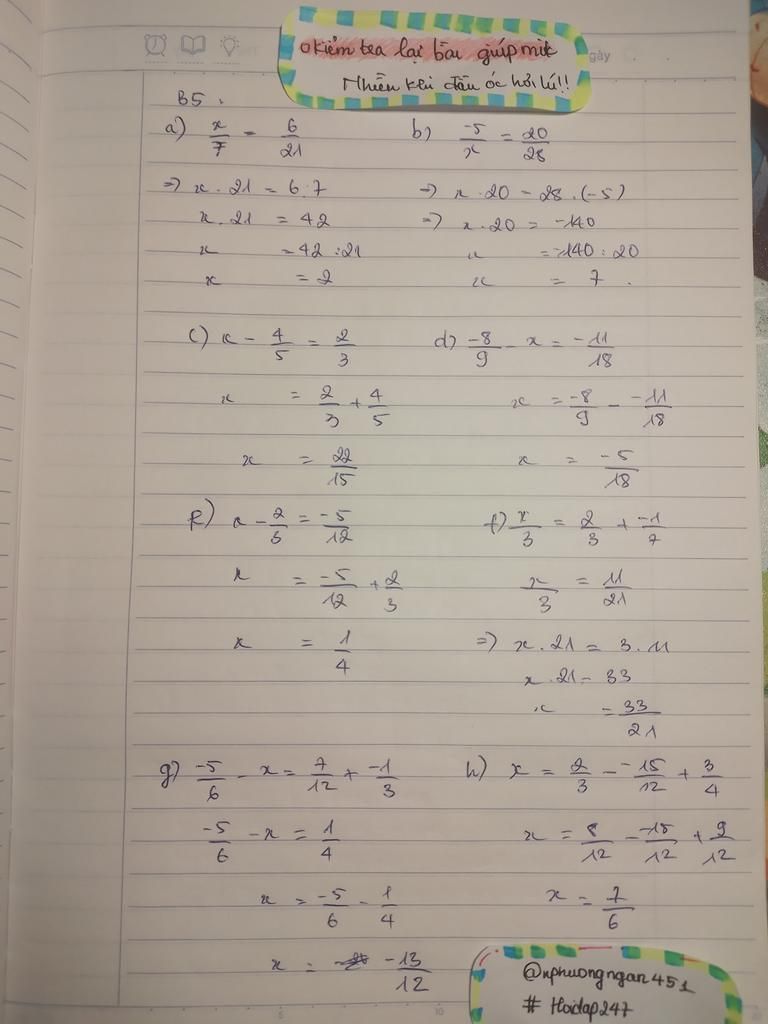 Kiểm tra lại bài giúp mik
Nhiều khi đầu óc hơi lú!!
B5.
a) x/7 = 6/21
=> x . 21 = 6.7
x . 21 = 42
x = 42 : 21
x = 2
b) -5/x = 20/28
=> x . 20 = 28 . (-5)
=> x . 20 = -140
x = -140 : 20
x = 7.
c) x - 4/5 = 2/3
x = 2/3 + 4/5
x = 22/15
d) -8/9 - x = -11/18
x = -8/9 - -11/18
x = -5/18
x - 2/3 = -5/12
x = -5/12 + 2/3
x = 1/4
f) x/3 = 2/3 + -1/7
x/3 = 11/21
=> x . 21 = 3 . 11
x . 21 = 33
x = 33/21
g) -5/6 - x = 7/12 + -1/3
-5/6 - x = 1/4
x = -5/6 - 1/4
x = -13/12
h) x = 2/3 - -15/12 + 3/4
x = 8/12 - -15/12 + 9/12
x = 7/6
@nphuongngan451
# Hoidap247